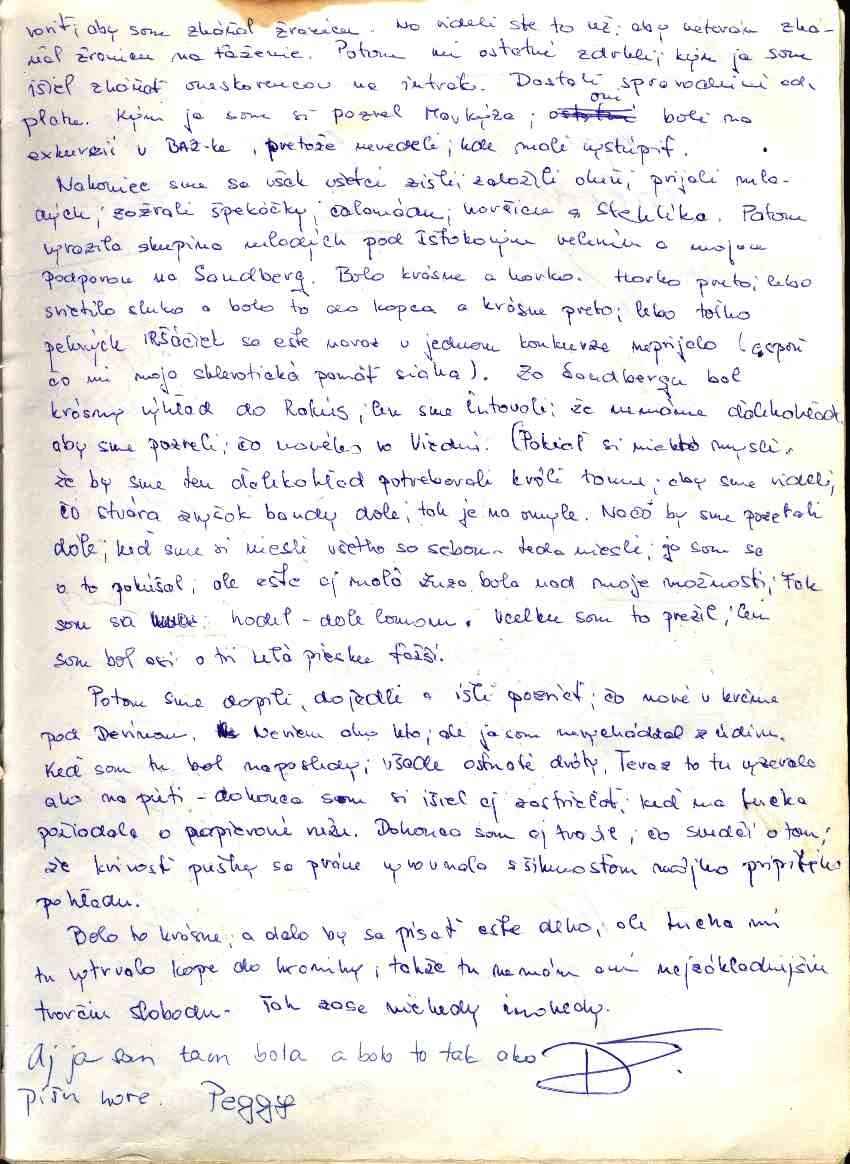 voriť, aby som zháňal žranicu. No videli ste to už, aby veterán zhá-
ňal žranicu na ťaženie. Potom mi ostatní zdrhli, kým ja som
išiel zháňať oneskorencov na intrák. Dostali spravodlivú od-
platu. Kým ja som si pozrel Mavkýza, oni boli na
exkurzii v BAZ-ke, pretože nevedeli, kde mali vystúpiť.
Nakoniec sme sa však všetci zišli, založili oheň, prijali mla-
dých, zožrali špekáčky, čalamádu, horčicu a Stehlíka. Potom
vyrazila skupina mladých pod Ištokovým velením a mojou
podporou na Sandberg. Bolo krásne a horko. Horko preto, lebo
svietilo slnko a bolo to do kopca a krásne preto, lebo toľko
pekných IRŠáčiek sa ešte naraz v jednom konkurze neprijalo (aspoň
čo mi moja sklerotická pamäť siaha). Zo Sandbergu bol
krásny výhľad do Rakús, len sme ľutovali, že nemáme ďalekohľad,
aby sme pozreli, čo nového vo Viedni. (Pokiaľ si niekto myslí,
že by sme ten ďalekohľad potrebovali kvôli tomu, aby sme videli,
čo stvára zvyšok bandy dole, tak je na omyle. Načo by sme pozerali
dole, keď sme si niesli všetko so sebou - teda niesli, ja som sa
o to pokúšal, ale ešte aj malá Zuza bola nad moje možnosti, tak
som sa hodil - dole lomom. Vcelku som to prežil, len
som bol asi o tri kelá piesku ťažší.
Potom sme dopili, dojedli a išli pozrieť, čo nové v krčme
pod Devínom. Neviem ako kto, ale ja som nevychádzal z údivu.
Keď som tu bol naposledy, všade ostnaté dráty. Teraz to tu vyzeralo
ako na púti - dokonca som si išiel aj zastrieľať, keď ma Lucka
požiadala o papierovú ružu. Dokonca som aj trafil, čo svedčí o tom,
že krivosť pušky sa práve vyrovnala s šikmosťou môjho pripitého
pohľadu.
Bolo to krásne, a dalo by sa písať ešte dlho, ale Lucka mi
tu vytrvalo kope do kroniky, takže tu nemám ani najzákladnejšiu
tvorčiu slobodu. Tak zase niekedy inokedy.
Aj ja som tam bola a bolo to tak ako
píšu hore. Peggy